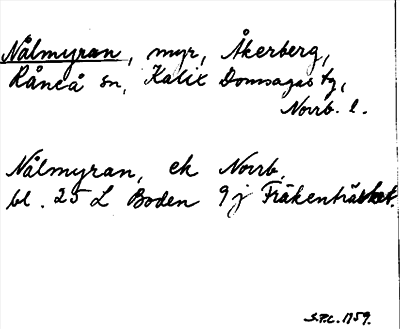 Nålmyran, myr, Åkerberg,
Råneå sn, Kalix Domsagas tg,
Norrb. l.
Nålmyran, ek Norrb.
bl. 25 L Boden 9j Fräkenträsket.
1959.